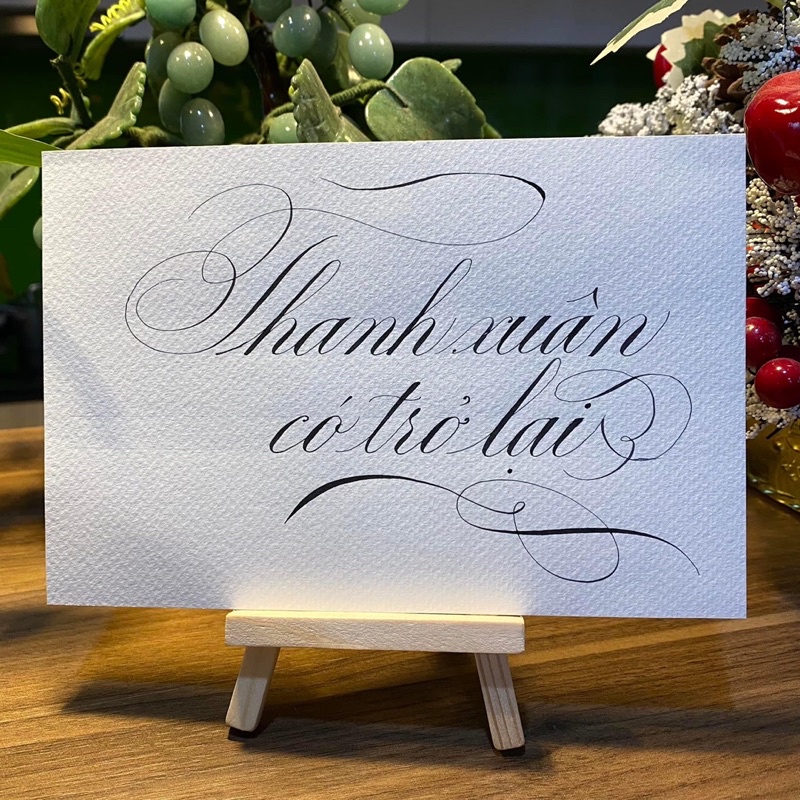 Thanh xuân
có trở lại